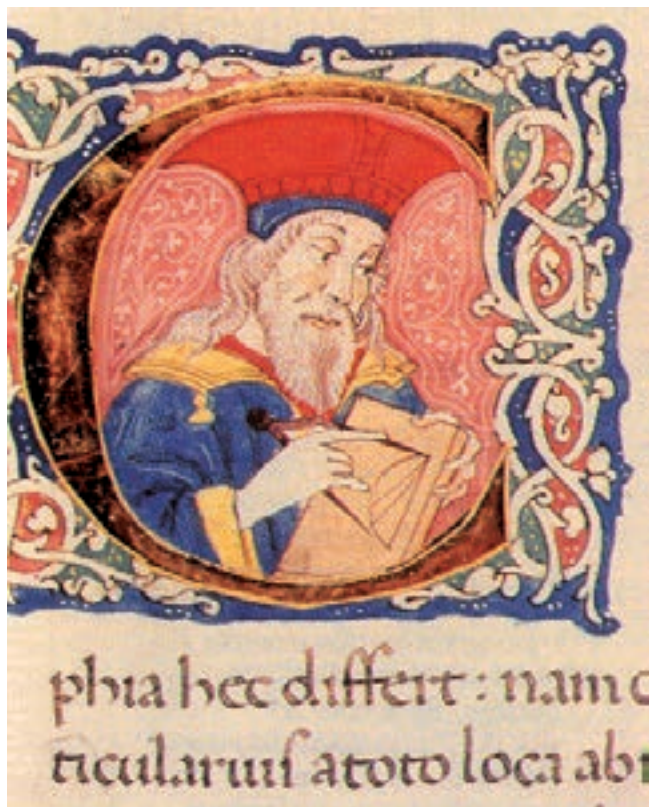 phia hec differt : nam c
ticulariuſ a toto loca ab